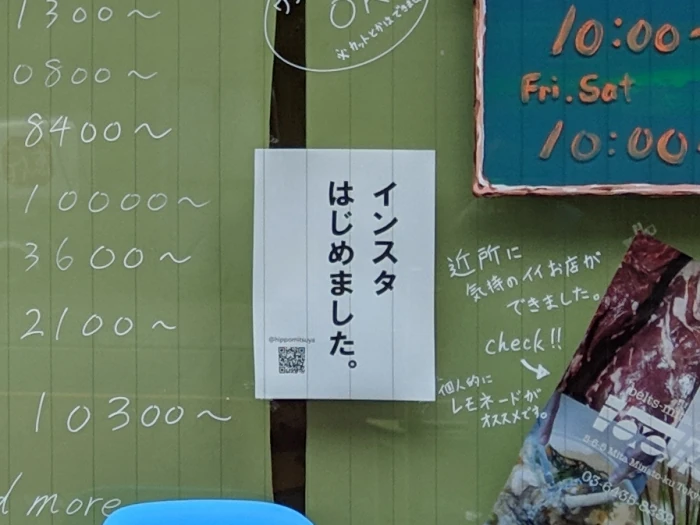 1300〜
0800〜
8400〜
10000〜
3600〜
2100〜
10300〜
d more
OK
※カットとかはできま
インスタ
はじめました。
@hippomitsuya
10:00〜
Fri.Sat
10:00
近所に
気持のイイお店が
できました。
check!!
個人的に
レモネードが
オススメです。
5-6-8 Mita Minato-ku